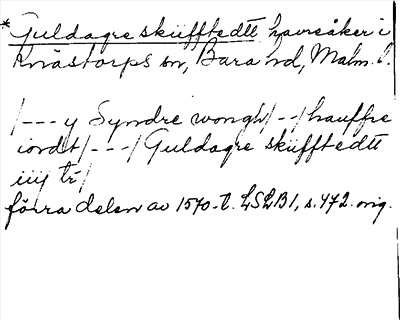 *Guldagre skiifftedtt havreåker i
Knästorps sn, Bara hd, Malm. l.
/--- y Syndre wongh/--/hauffre
iordt/---/Guldagre skiifftedtt
iiij tr/
förra delen av 1570-t. LSLB1, s.472. orig.